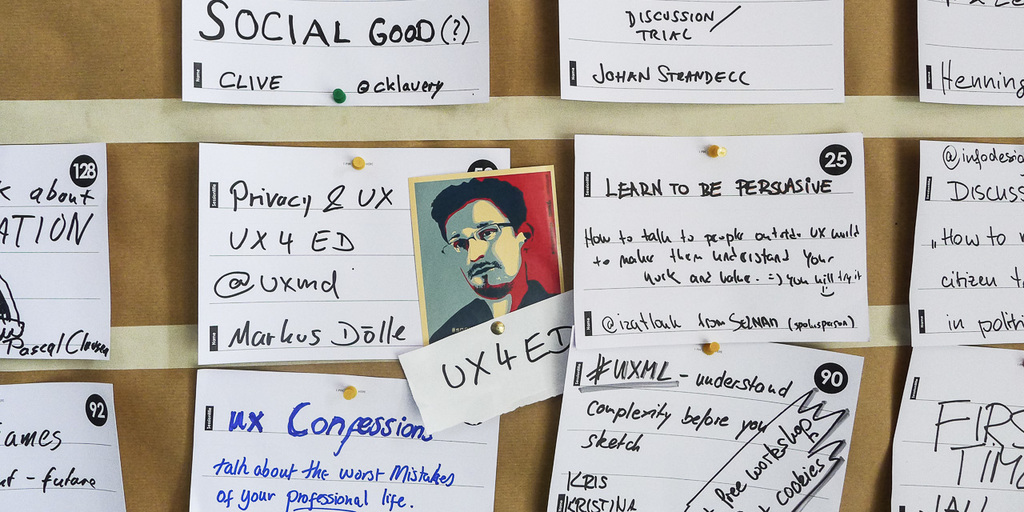 SOCIAL GOOD(?)
CLIVE @cklavery
DISCUSSION
TRIAL
JOHAN
Henning
128
about
ATION
Pascal
Privacy & UX
UX 4 ED
@uxmd
Markus Dölle
UX 4 ED
25
LEARN TO BE PERSUASIVE
How to talk to people outside UX world
to make them understand your
work and value. =) you will try it
@izatlouk from SELMAN (spokesperson)
@infodesig
DISCUSS
„How to
citizen
in polit
92
games
- future
UX Confessions
talk about the worst Mistakes
of your Professional life.
90
#UXML - understand
complexity before you
sketch
KRIS
KRISTINA
free workshop
cookies
FIRS
TIM